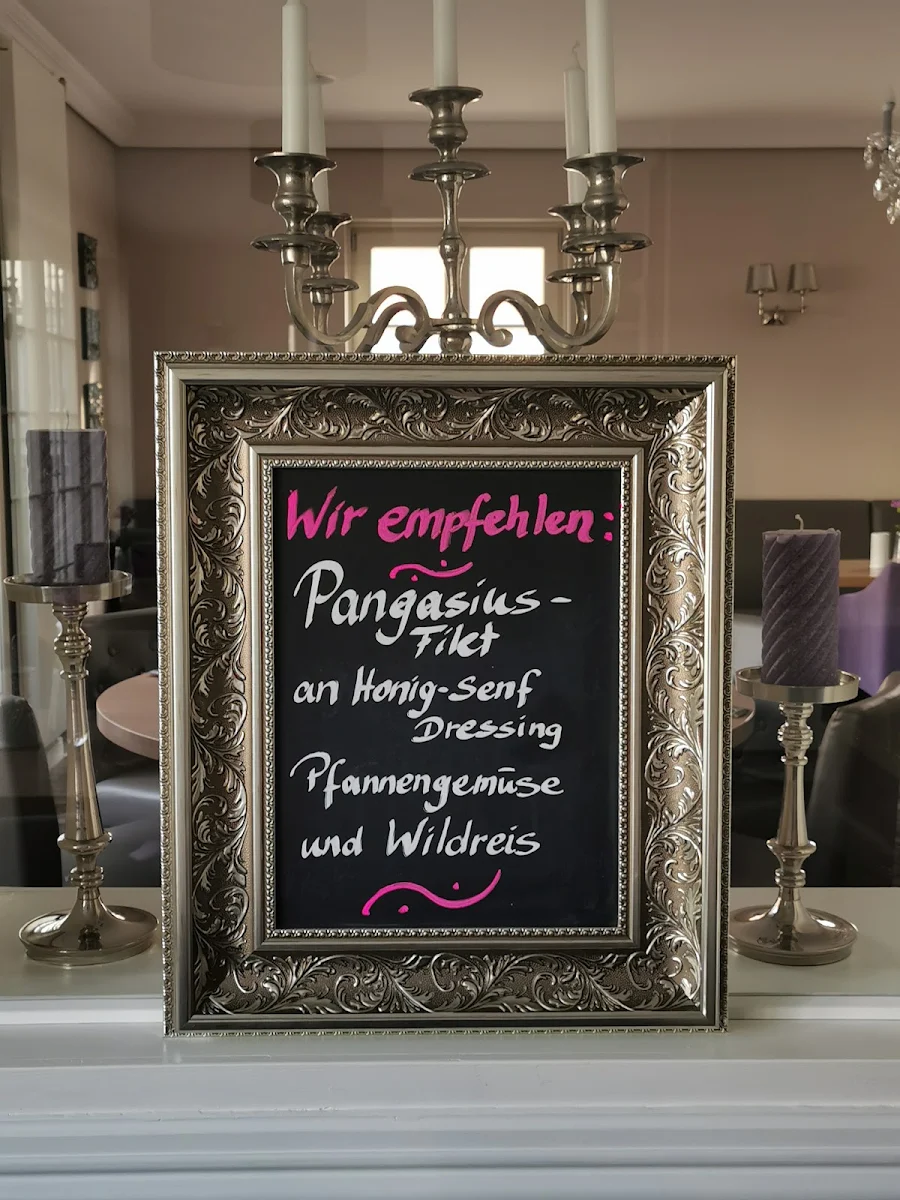 Wir empfehlen:
Pangasius-
Filet
an Honig-Senf
Dressing
Pfannengemüse
und Wildreis